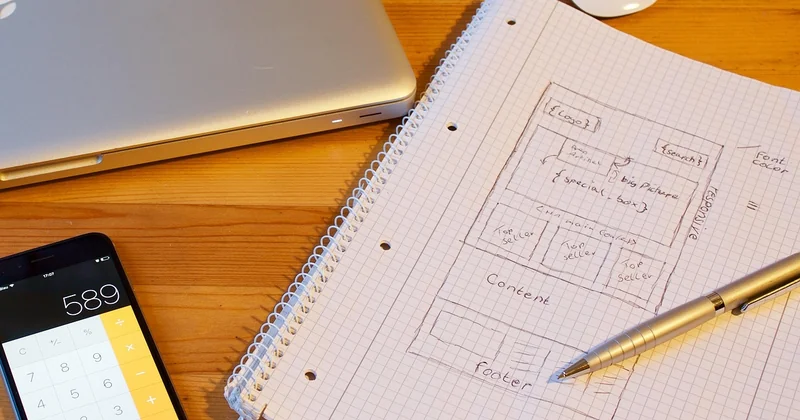 17:07
589
C +/- % ÷
7 8 9 ×
4 5 6 -
1 2 3 +
{Logo}
{search}
big Picture
{special_box}
main Content
Top seller
Top seller
Top seller
responsive
Font
color
Content
footer